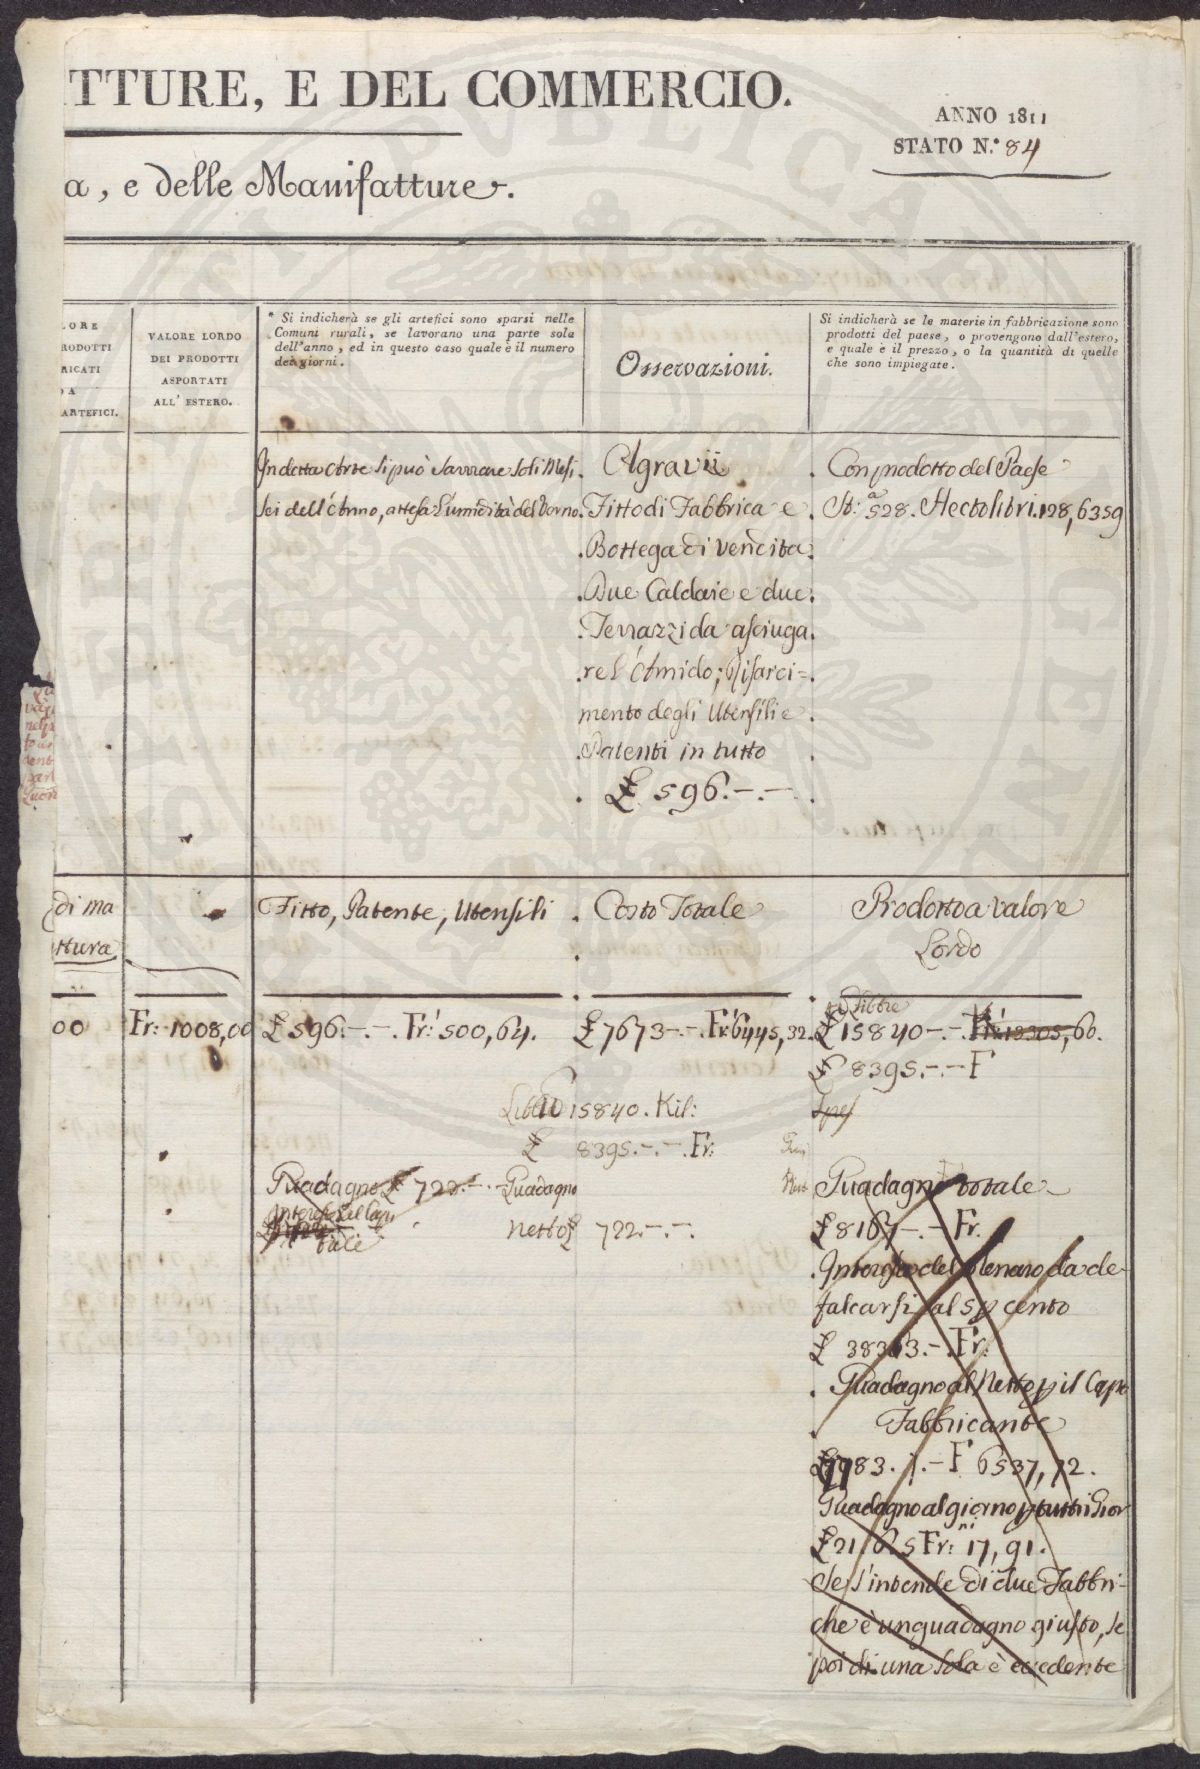 TTURE, E DEL COMMERCIO.
ANNO 1811
STATO N.° 84
a, e delle Manifatture.
LORE
RODOTTI
RICATI
DA
ARTEFICI.
VALORE LORDO
DEI PRODOTTI
ASPORTATI
ALL' ESTERO.
* Si indicherà se gli artefici sono sparsi nelle
Comuni rurali, se lavorano una parte sola
dell'anno, ed in questo caso quale è il numero
dei giorni.
Osservazioni.
Si indicherà se le materie in fabbricazione sono
prodotti del paese, o provengono dall'estero,
e quale è il prezzo, o la quantità di quelle
che sono impiegate.
In detta Arte si può lavorare soli Mesi
sei dell'Anno, attesa l'umidità del Verno.
Agravii
Fitto di Fabbrica e
Bottega di vendita
Due Caldaie e due
Terrazzi da asciuga
re l'Amido; Risarci=
mento degli Utensili e
Patenti in tutto
£ 596.-.-
Con prodotto del Paese
St.a 528. Hectolibri. 128,6359
di ma
ttura
Fitto, Patente, Utensili
Costo Totale
Prodotto a valore
Lordo
00
Fr: 1008,00
£ 596.-.- Fr: 500,64.
£ 7673-.- Fr: 6445,32.
Libbre
£ 15840-.- Fr: 13305,60.
£ 8395.-.- F
Spes
Libbre 15840. Kil:
£ 8395.-.- Fr:
Guadagno £ 722.-.-
Interesse del Capi
tale
Guadagno
netto £ 722.-.-
Guadagno totale
£ 8167-.- Fr.
Interesse del denaro da de
falcarsi al 5 p cento
£ 383 3.- Fr:
Guadagno al Netto p il Capo
Fabbricante
83. F 6537,72.
Guadagno al giorno p tutti i Gior
ni
£ 21 5 Fr: 17,91.
Se s'intende di due Fabbri-
che è un guadagno giusto, se
poi di una sola è eccedente